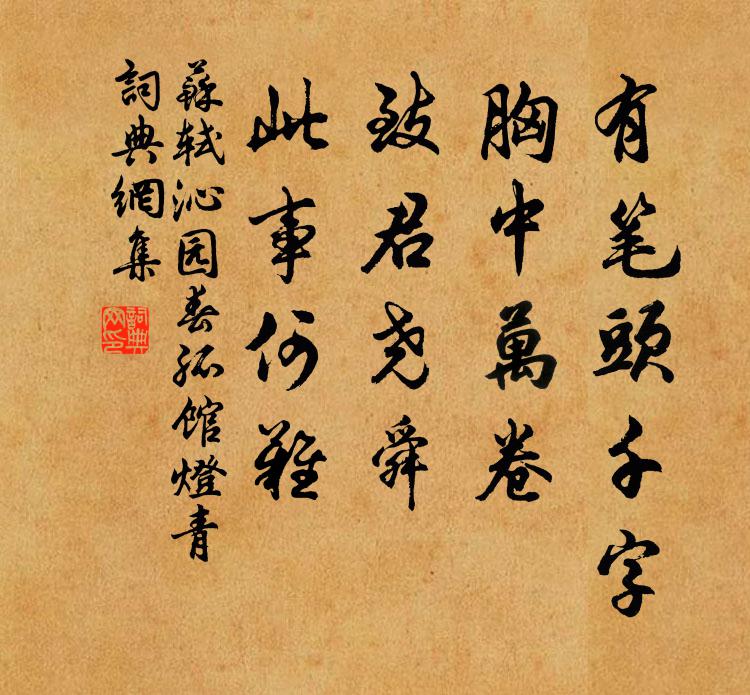 有笔頭千字
胸中萬卷
致君尧舜
此事何難
蘇軾沁园春孤館燈青
詞典網集
詞典網印